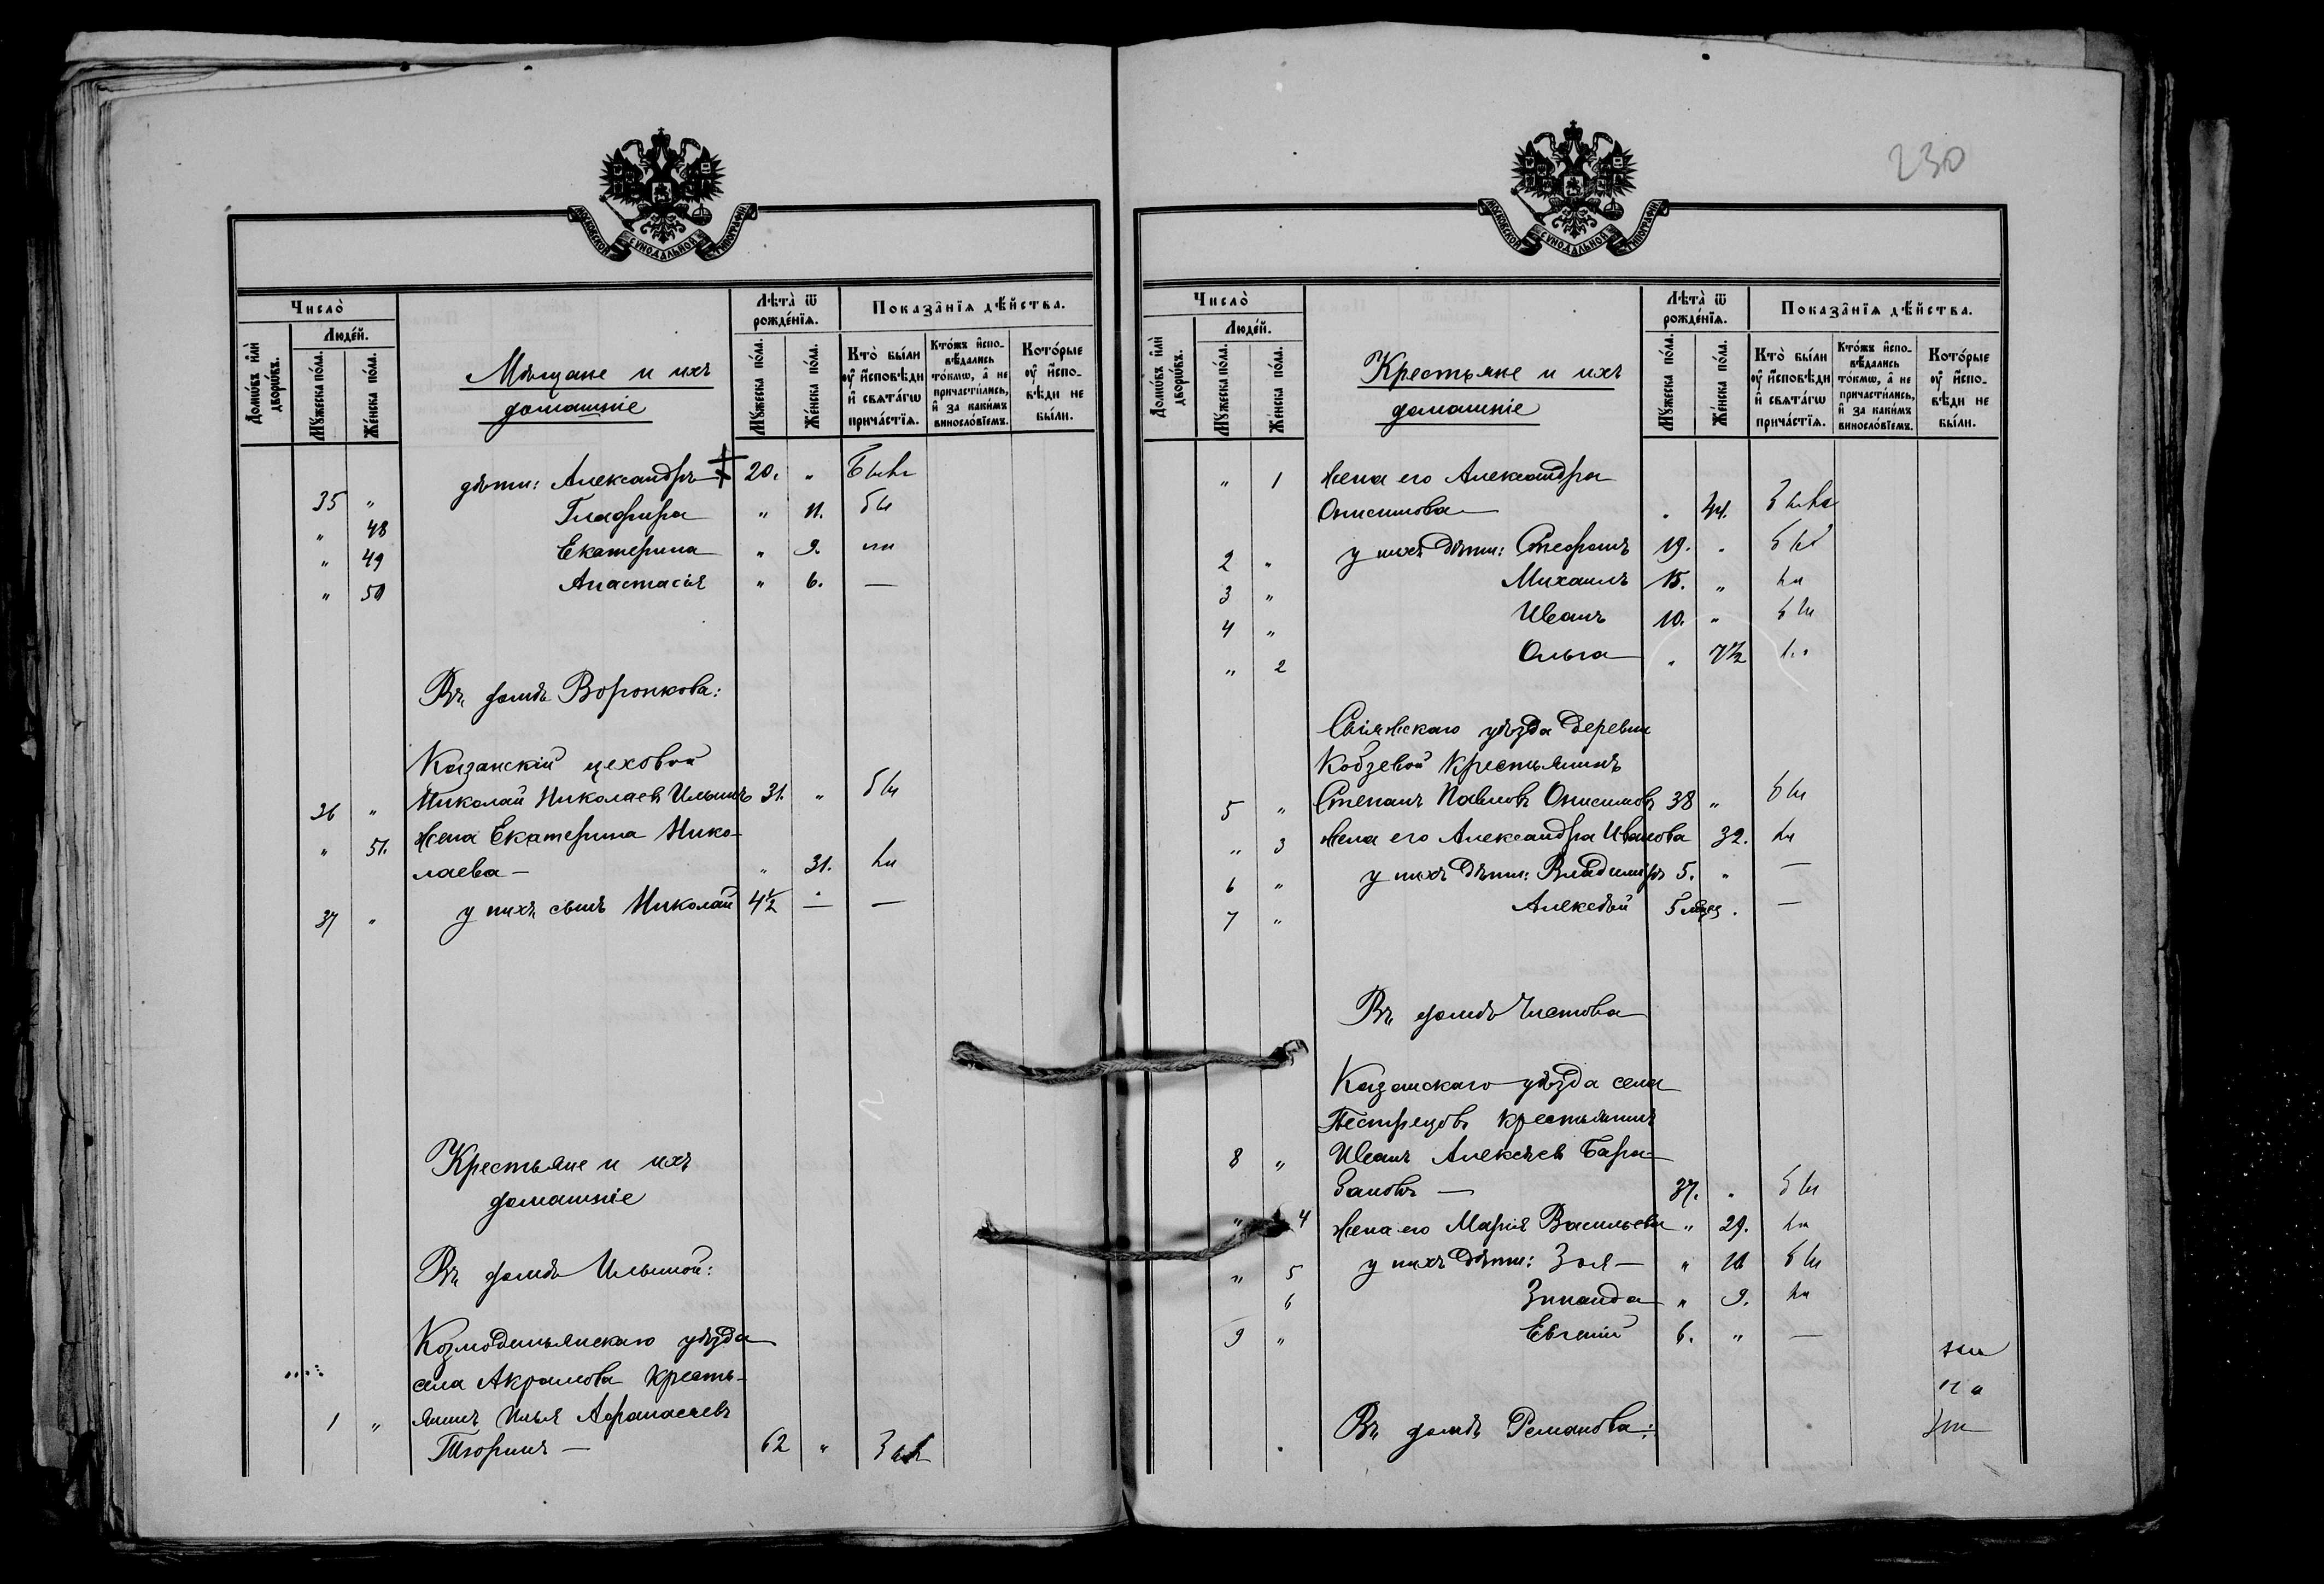 230
МОСКОВСКОЙ СѴНОДАЛЬНОЙ ТИПОГРАФІИ
Число̀
Людéй.
Домѡ́въ и҆лѝ дворѡ́въ.
Мꙋ́жеска по́ла.
Же́нска по́ла.
Мѣщане и ихъ
домашніе
Лѣта̀ ѿ рожде́нїѧ.
Мꙋ́жеска по́ла.
Же́нска по́ла.
Показа̑нїѧ дѣ́йства.
Кто̀ бы́ли оу҆ и҆́сповѣди и҆ свѧта́гѡ прича́стїѧ.
Кто́жъ и҆спо-вѣ́дались то́кмѡ, а҆ не причасти́лись, и҆ за каки́мъ винослові́емъ.
Кото́рые оу҆ и҆́спо-вѣди не бы́ли.
35 " дѣти: Александръ 20. " Былъ
" 48 Глафира " 11.
" 49 Екатерина " 9.
" 50 Анастасія " 6. —
Въ домѣ Воронкова:
Казанскій цеховой
36 " Николай Николаевъ Ильинъ 31. "
" 51. Жена Екатерина Нико-
лаева — " 31.
37 " у нихъ сынъ Николай 4½ — —
Крестьяне и ихъ
домашніе
Въ домѣ Ильиной:
Козмодемьянскаго уѣзда
села Акрамова кресть-
1 " янинъ Илья Афанасьевъ
Тюринъ — 62 "
МОСКОВСКОЙ СѴНОДАЛЬНОЙ ТИПОГРАФІИ
Число̀
Людéй.
Домѡ́въ и҆лѝ дворѡ́въ.
Мꙋ́жеска по́ла.
Же́нска по́ла.
Крестьяне и ихъ
домашніе
Лѣта̀ ѿ рожде́нїѧ.
Мꙋ́жеска по́ла.
Же́нска по́ла.
Показа̑нїѧ дѣ́йства.
Кто̀ бы́ли оу҆ и҆́сповѣди и҆ свѧта́гѡ прича́стїѧ.
Кто́жъ и҆спо-вѣ́дались то́кмѡ, а҆ не причасти́лись, и҆ за каки́мъ винослові́емъ.
Кото́рые оу҆ и҆́спо-вѣди не бы́ли.
" 1 Жена его Александра
Онисимова — " 44. Была
2 " у нихъ дѣти: Стефанъ 19. "
3 " Михаилъ 15. "
4 " Иванъ 10. "
" 2 Ольга " 7½
Свіяжскаго уѣзда деревни
Кобзевой крестьянинъ
5 " Степанъ Павловъ Онисимовъ 38 "
" 3 Жена его Александра Иванова 32.
6 " у нихъ дѣти: Владиміръ 5. " —
7 " Алексѣй 5 мѣс. —
Въ домѣ Чистова
Казанскаго уѣзда села
Пестрецовъ крестьянинъ
8 " Иванъ Алексѣевъ Бара-
бановъ — 37. "
" 4 Жена его Марія Васильева " 29.
" 5 у нихъ дѣти: Зоя — "
6 Зинаида " 9.
9 " Евгеній 6. " —
Въ домѣ Романова: